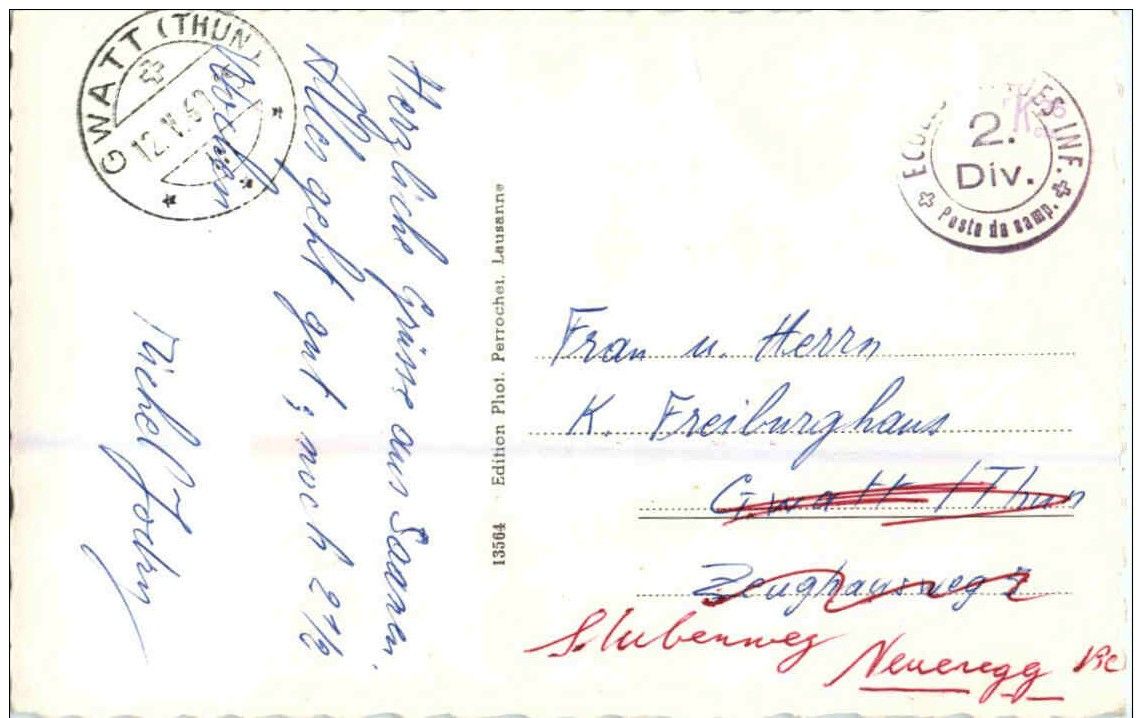 GWATT (THUN)
12. V. 6
Herzliche Grüsse aus Saanen.
Alles geht gut, noch 2 1/2
Wochen
Michel
13564 Edition Phot. Perrochet, Lausanne
ES INF.
2.
Div.
Poste de camp.
Frau u. Herrn
K. Freiburghaus
Gwatt / Thun
Zeughausweg
Stubenweg
Neueregg